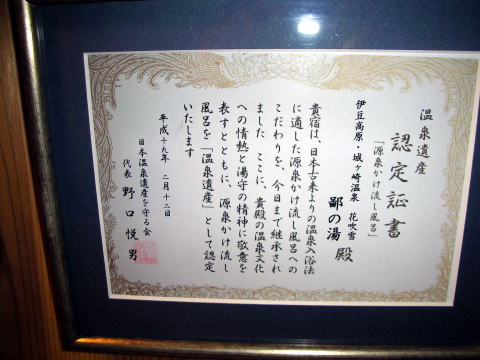 温泉遺産
認定証書
「源泉かけ流し風呂」
伊豆高原・城ヶ崎温泉 花吹雪
鄙の湯 殿
貴宿は、日本古来よりの温泉入浴法
に適した源泉かけ流し風呂への
こだわりを、今日まで継承され
ました ここに、貴殿の温泉文化
への情熱と湯守の精神に敬意を
表すとともに、源泉かけ流し
風呂を「温泉遺産」として認定
いたします
平成十九年 二月十二日
日本温泉遺産を守る会
代表 野口悦男